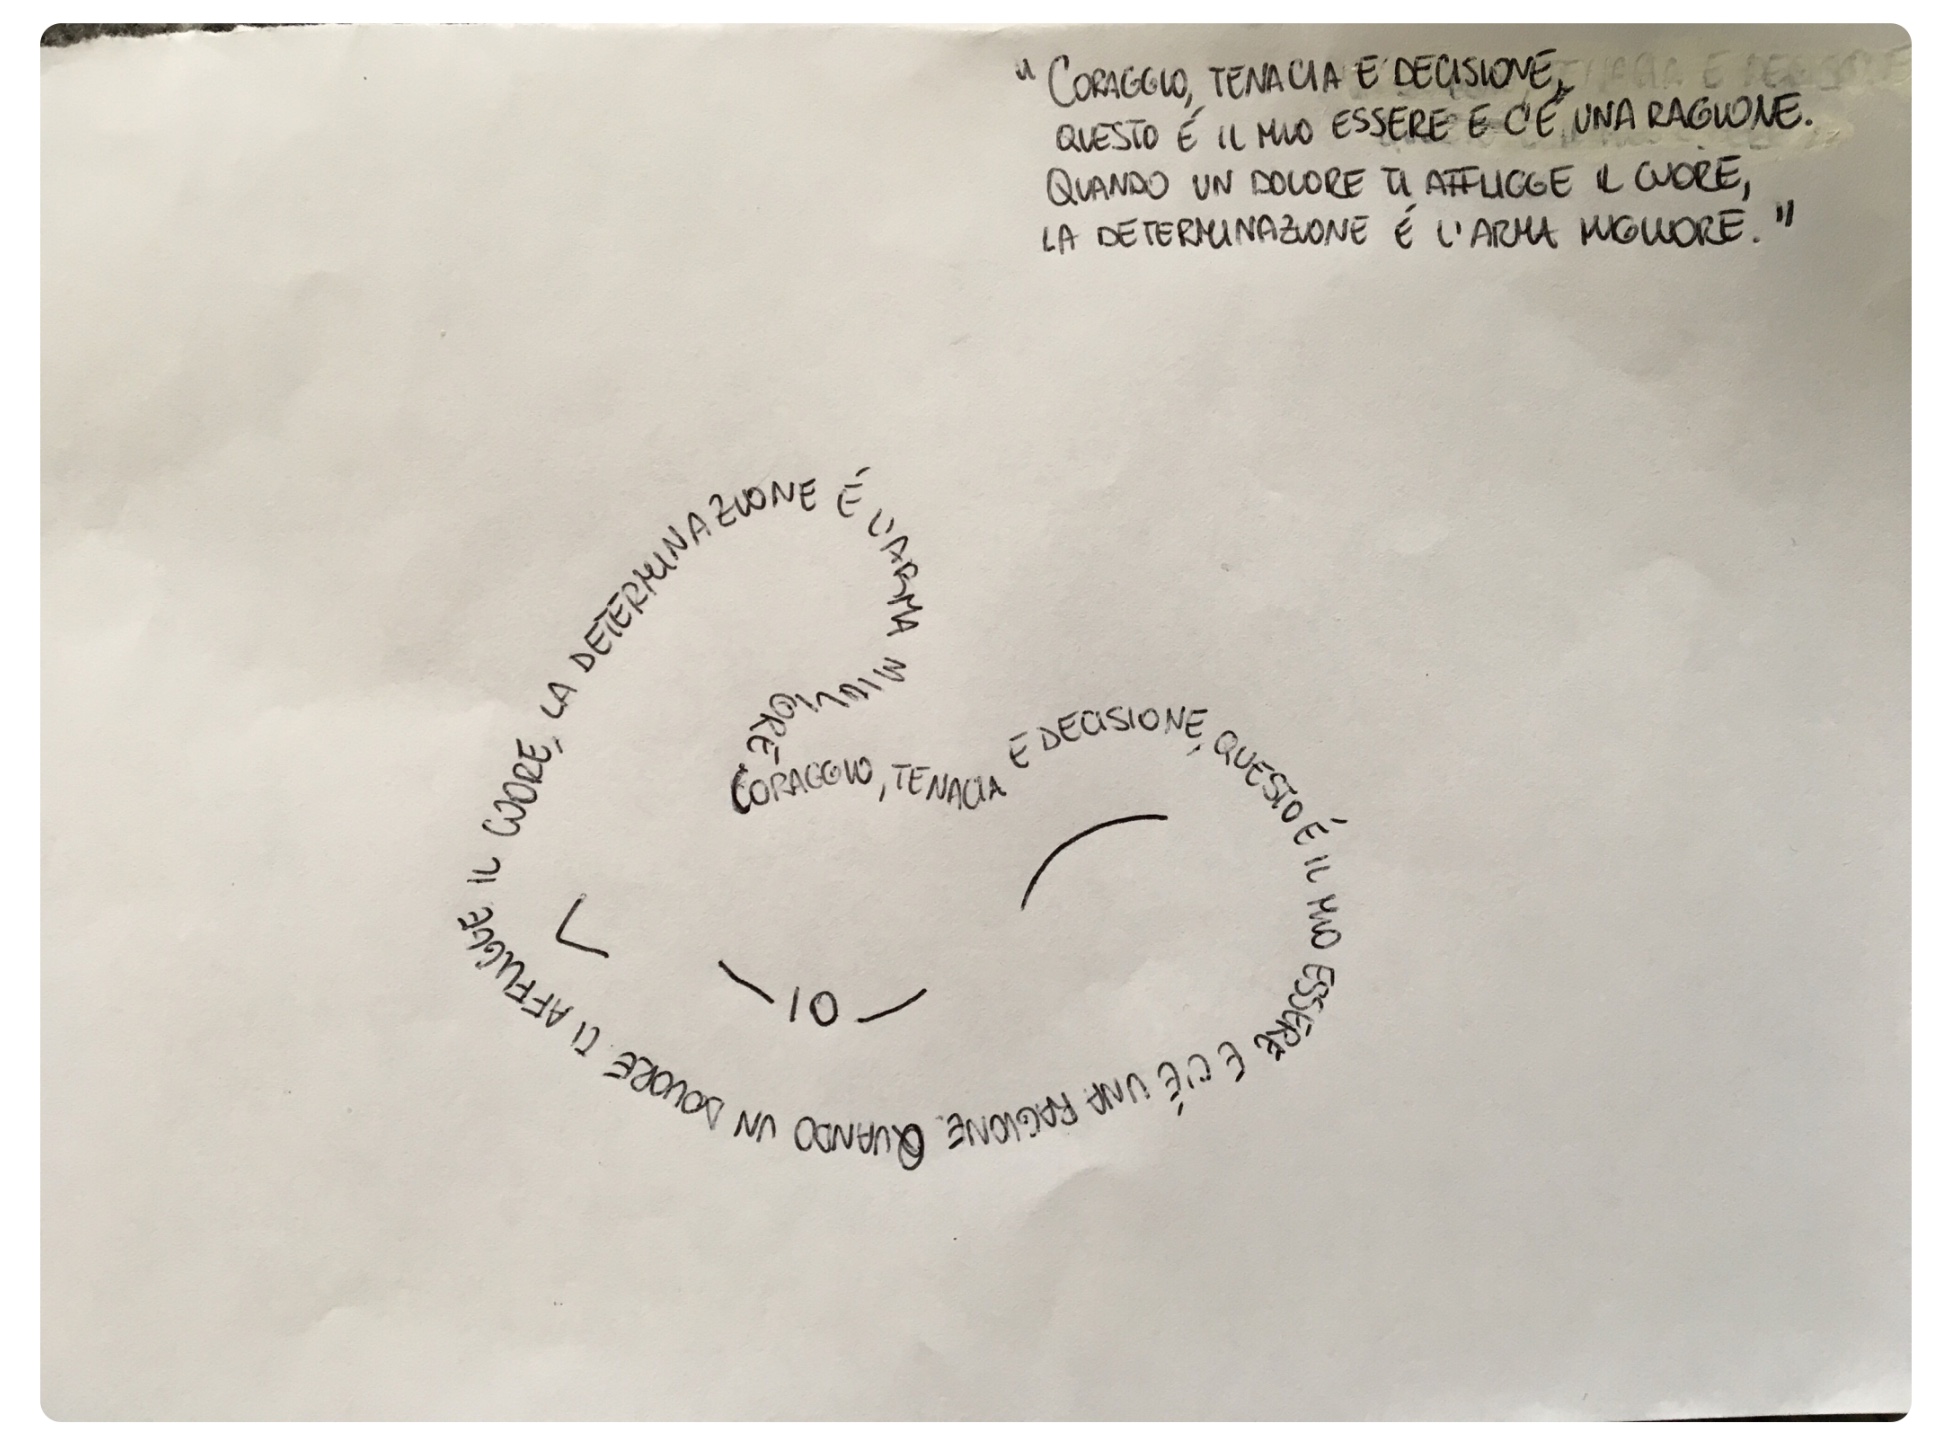 "CORAGGIO, TENACIA E DECISIONE,
QUESTO É IL MIO ESSERE E C'É UNA RAGIONE.
QUANDO UN DOLORE TI AFFLIGGE IL CUORE,
LA DETERMINAZIONE É L'ARMA MIGLIORE."
CORAGGIO, TENACIA E DECISIONE, QUESTO É IL MIO ESSERE E C'É UNA RAGIONE. QUANDO UN DOLORE TI AFFLIGGE IL CUORE, LA DETERMINAZIONE É L'ARMA MIGLIORE.
IO